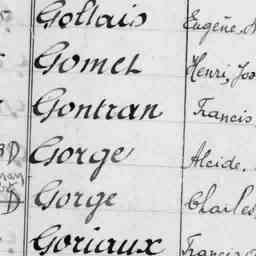 Gollais Eugène,
Gomel Henri, Jos
Gontran Francis
D Gorge Alcide,
D Gorge Charles
Goriaux Francis